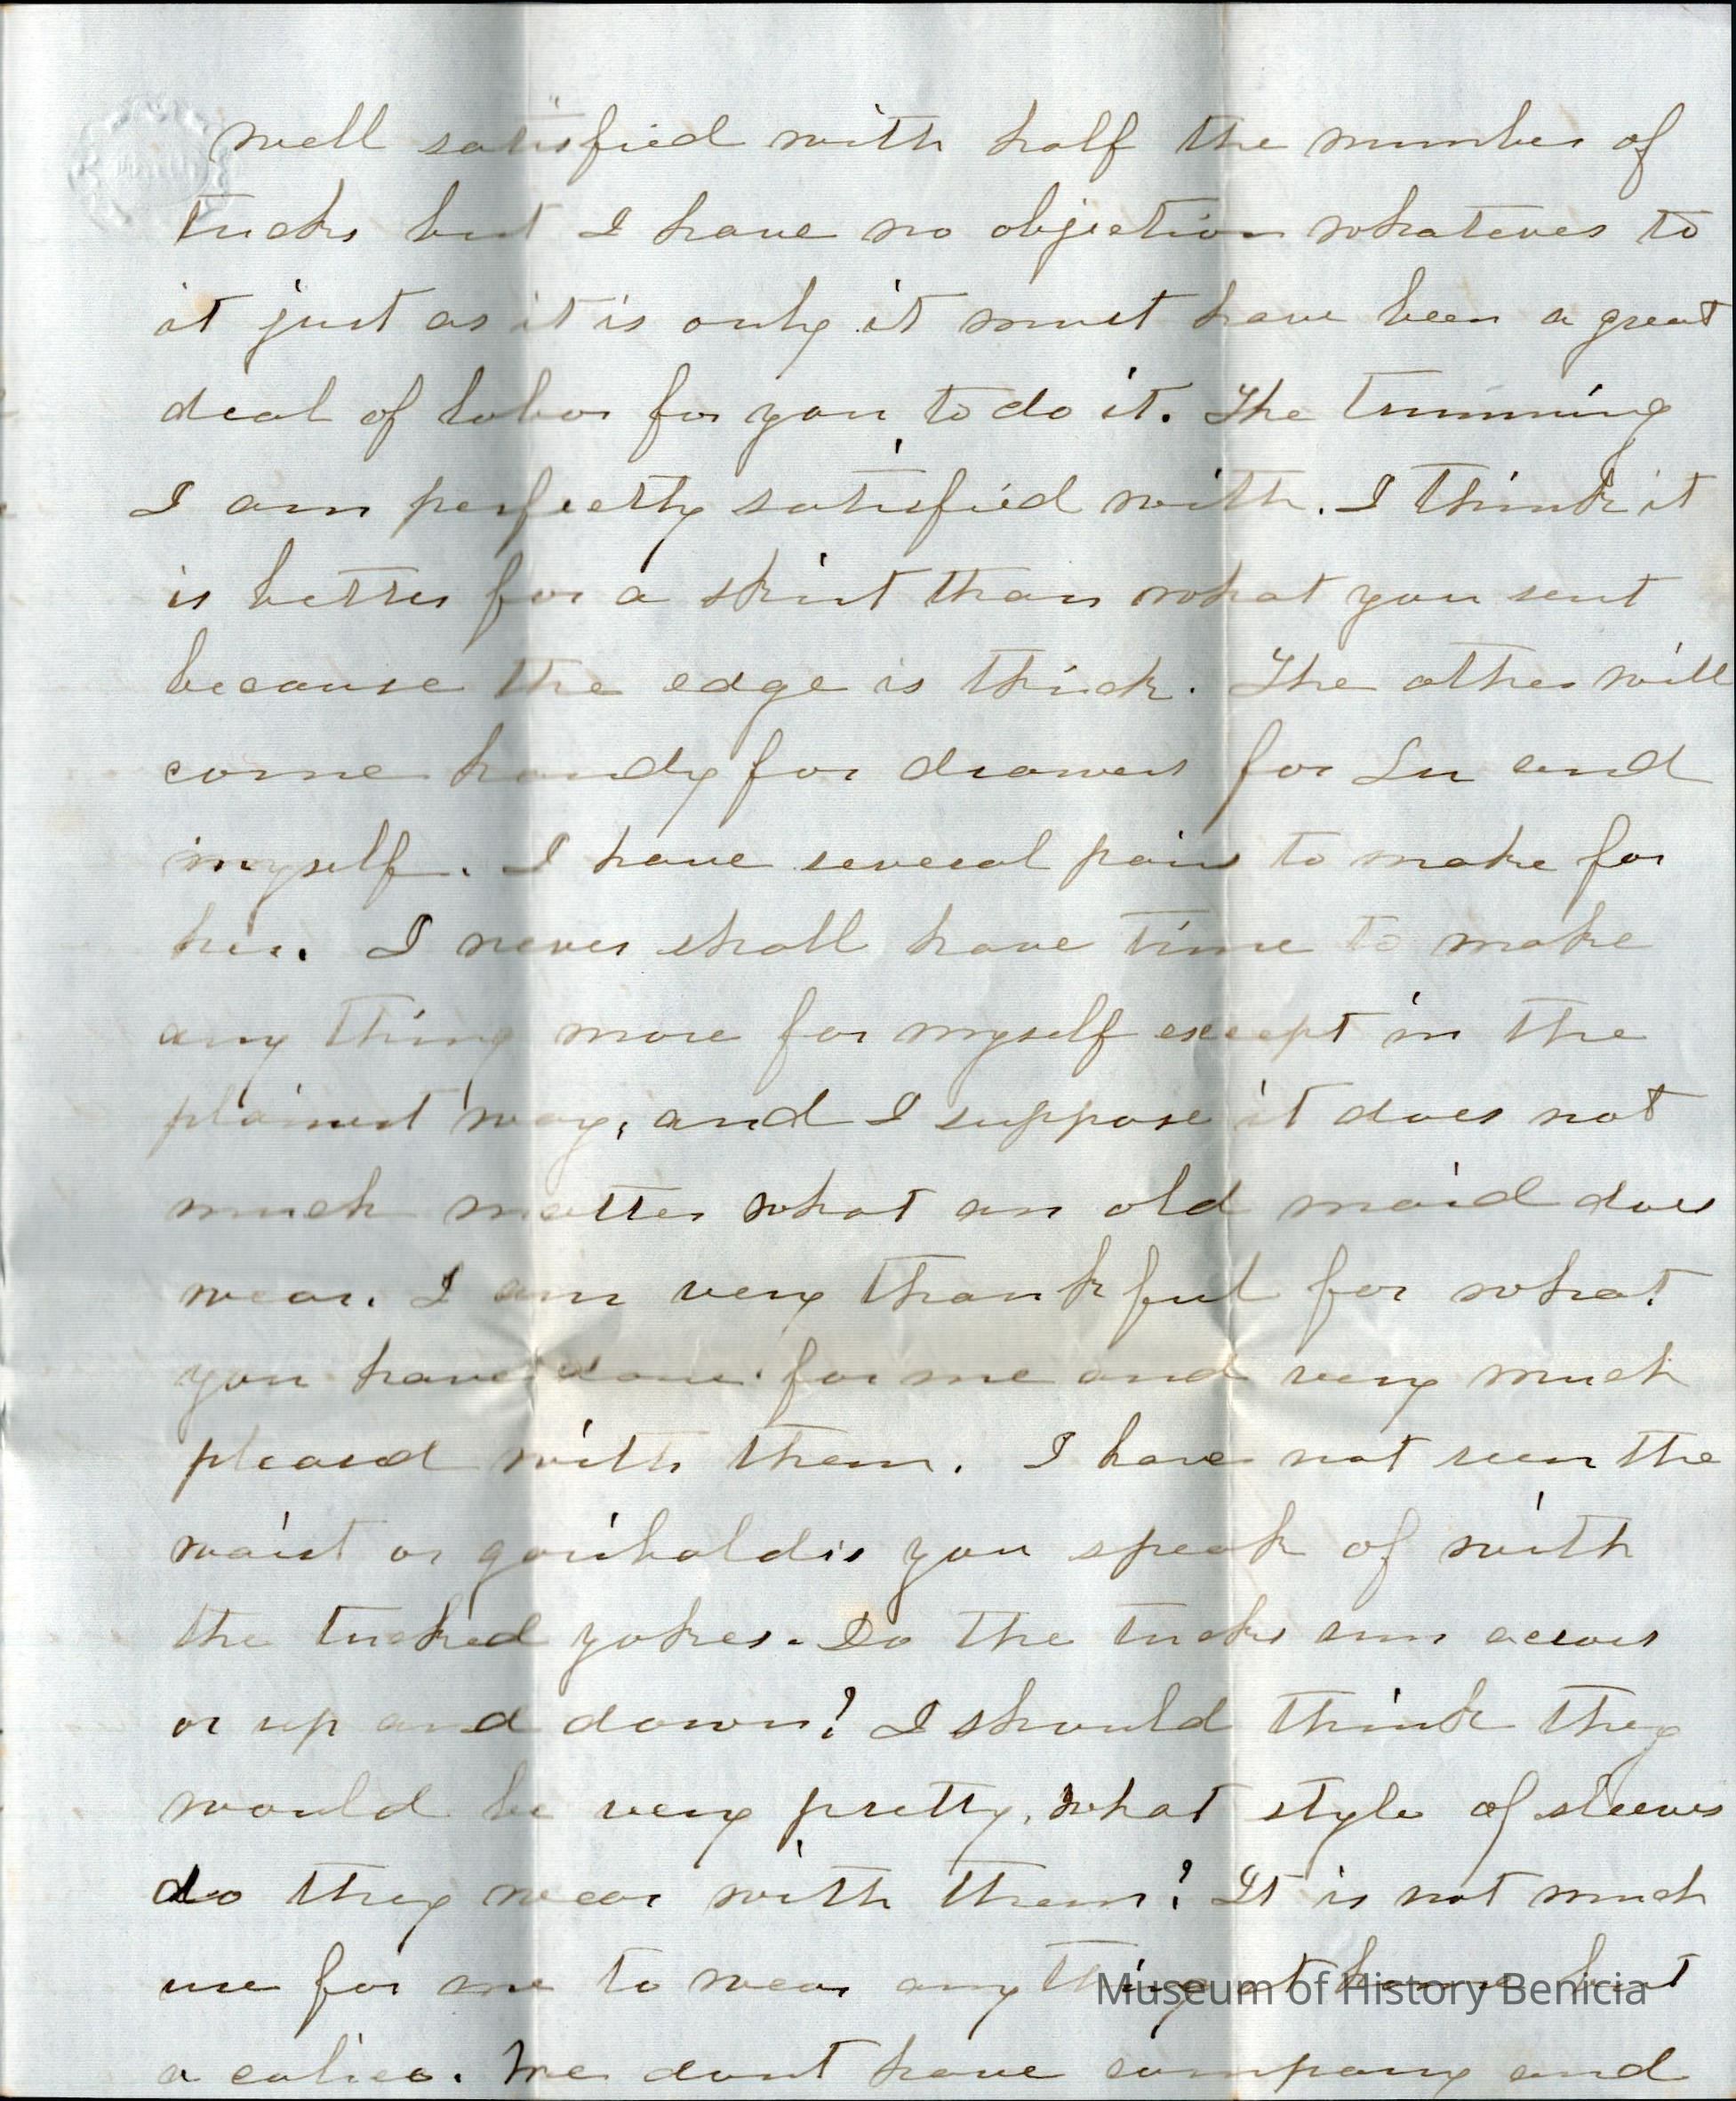 well satisfied with half the number of
tucks but I have no objection whatever to
it just as it is only it must have been a great
deal of labor for you to do it. The trimming
I am perfectly satisfied with. I think it
is better for a skirt than what you sent
because the edge is thick. The other will
come handy for drawers for Lu and
myself. I have several pairs to make for
her. I never shall have time to make
any thing more for myself except in the
plainest way, and I suppose it does not
much matter what an old maid does
wear. I am very thankful for what
you have done for me and very much
pleased with them. I have not seen the
waist or garibaldis you speak of with
the tucked yokes. Do the tucks run across
or up and down? I should think they
would be very pretty, what style of sleeves
do they wear with them? It is not much
use for me to wear any thing at home but
a calico. We dont have company and
Museum of History Benicia